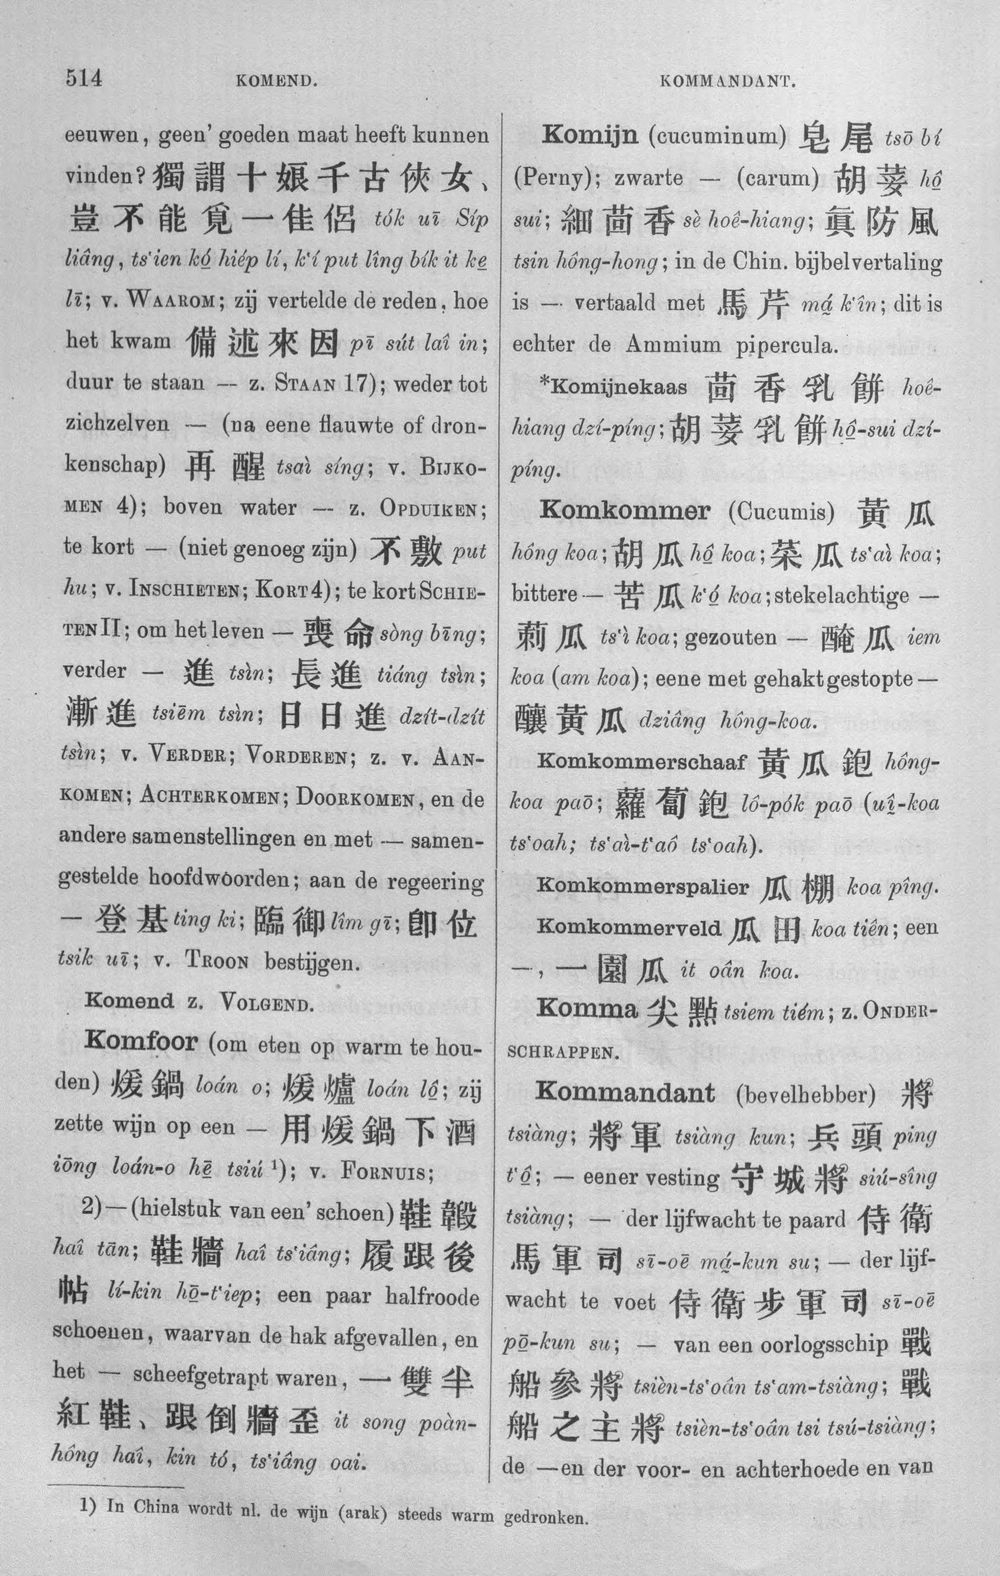 514 KOMEND. KOMMANDANT.
eeuwen, geen' goeden maat heeft kunnen
vinden? 獨謂十娘千古俠女、
豈不能覓一佳侶 tók uī Síp
liâng, ts'ien kó hiép lí, k'í put lîng bík it ke
lī; v. WAAROM; zij vertelde de reden, hoe
het kwam 備述來因 pī sút laî in;
duur te staan — z. STAAN 17); weder tot
zichzelven — (na eene flauwte of dron-
kenschap) 再醒 tsaì síng; v. BIJKO-
MEN 4); boven water — z. OPDUIKEN;
te kort — (niet genoeg zijn) 不敷 put
hu; v. INSCHIETEN; KORT 4); te kort SCHIE-
TEN II; om het leven — 喪命 sòng bīng;
verder — 進 tsìn; 長進 tiáng tsìn;
漸進 tsiēm tsìn; 日日進 dzít-dzít
tsìn; v. VERDER; VORDEREN; z. v. AAN-
KOMEN; ACHTERKOMEN; DOORKOMEN, en de
andere samenstellingen en met — samen-
gestelde hoofdwoorden; aan de regeering
— 登基 ting ki; 臨御 lîm gī; 卽位
tsik uī; v. TROON bestijgen.
Komend z. VOLGEND.
Komfoor (om eten op warm te hou-
den) 煖鍋 loán o; 煖爐 loán lô; zij
zette wijn op een — 用煖鍋下酒
iōng loán-o hē tsiú ¹); v. FORNUIS;
2) — (hielstuk van een' schoen) 鞋鞎
haî tān; 鞋牆 haî ts'iâng; 履跟後
帖 lí-kin hō-t'iep; een paar halfroode
schoenen, waarvan de hak afgevallen, en
het — scheefgetrapt waren, 一雙半
紅鞋、跟倒牆歪 it song poàn-
hông haî, kin tó, ts'iâng oai.
Komijn (cucuminum) 皂尾 tsō bí
(Perny); zwarte — (carum) 胡荽 hô
sui; 細茴香 sè hoê-hiang; 眞防風
tsin hông-hong; in de Chin. bijbelvertaling
is — vertaald met 馬芹 má k'în; dit is
echter de Ammium pipercula.
*Komijnekaas 茴香乳餅 hoê-
hiang dzí-píng; 胡荽乳餅 hô-sui dzí-
píng.
Komkommer (Cucumis) 黃瓜
hông koa; 胡瓜 hô koa; 菜瓜 ts'aì koa;
bittere — 苦瓜 k'ó koa; stekelachtige —
莿瓜 ts'ì koa; gezouten — 醃瓜 iem
koa (am koa); eene met gehakt gestopte —
釀黃瓜 dziâng hông-koa.
Komkommerschaaf 黃瓜鉋 hông-
koa paō; 蘿蔔鉋 lô-pók paō (uî-koa
ts'oah; ts'aì-t'aô ts'oah).
Komkommerspalier 瓜棚 koa pîng.
Komkommerveld 瓜田 koa tiên; een
—, 一園瓜 it oân koa.
Komma 尖點 tsiem tiém; z. ONDER-
SCHRAPPEN.
Kommandant (bevelhebber) 將
tsiàng; 將軍 tsiàng kun; 兵頭 ping
t'ô; — eener vesting 守城將 siú-sîng
tsiàng; — der lijfwacht te paard 侍衛
馬軍司 sī-oē má-kun su; — der lijf-
wacht te voet 侍衛步軍司 sī-oē
pō-kun su; — van een oorlogsschip 戰
船參將 tsièn-ts'oân ts'am-tsiàng; 戰
船之主將 tsièn-ts'oân tsi tsú-tsiàng;
de — en der voor- en achterhoede en van
1) In China wordt nl. de wijn (arak) steeds warm gedronken.